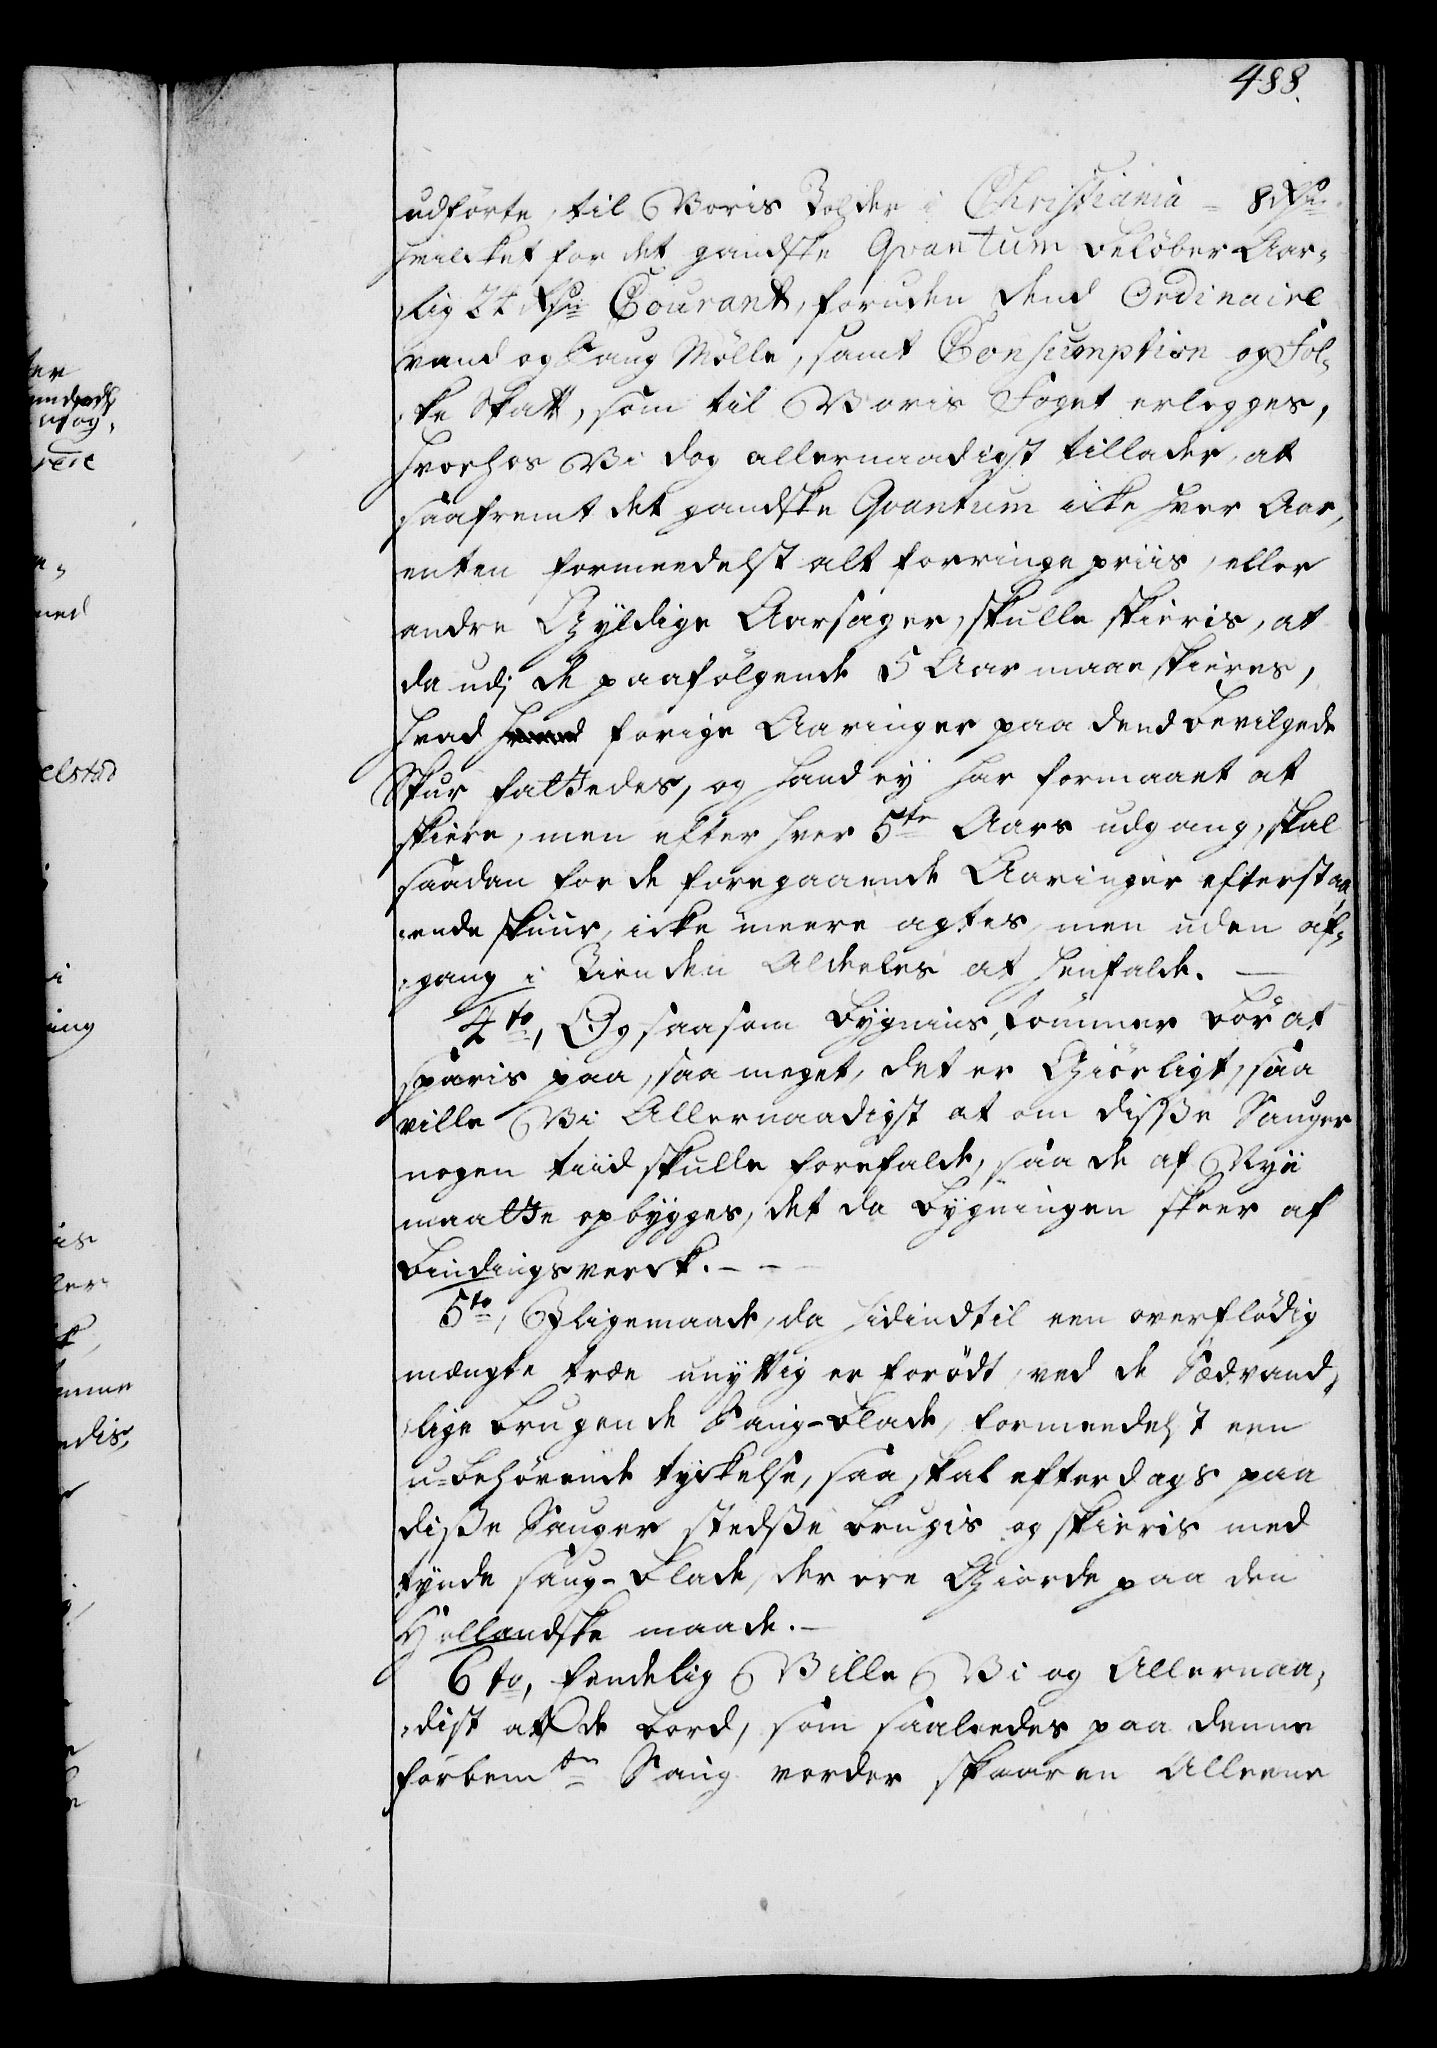 488.
udförte, til Voris Tolder i Christiania = 8 Rdr
hvilcket for det gandske Qvantum belöber Aar-
lig 24 Rdr Courant, foruden dend Ordinaire
vand og Saug Mölle, samt Consumption og Fol-
ke Skatt, som til Voris Foget erlegges,
hvorhos Vi dog allernaadigst tillader, at
saafremt det gandske Qvantum icke hver Aar,
enten formeedelst alt for ringe priis, eller
andre Gyldige Aarsager, skulle skieris, at
da udj de paafölgende 5 Aar maae skieres,
hvad forige Aaringer paa dend bevilgede
Skur fattedes, og hand ey har formaaet at
skiere, men efter hver 5te Aars udgang, skal
saadan for de foregaaende Aaringer efterstaa-
ende skuur, icke meere agtes, men uden af-
gang i Tienden Aldeeles at henfalde.
4to, Og saasom bygnings Tömmer bör at
sparis paa, saa meget, det er Giörligt, saa
ville Vi Allernaadigst at om disse Sauger
nogen tiid skulle forefalde, saa de af Nye
maatte opbygges, det da bygningen skeer af
bindingsverck. - - -
5to, Iligemaade, da hidindtil een overflödig
mængde træe unyttig er forödt, ved de Sædvand-
lige brugende Saug-blade, formeedelst een
u-behörende tyckelse, saa skal efterdags paa
disse Sauger stedsse brugis og skieris med
tynde saug-blade, der ere Giorde paa den
Hollandske maade. -
6to, Endelig Ville Vi og Allernaa-
dist at de bord, som saaleedes paa denne
forbemte Saug vorder skaaren Alleene